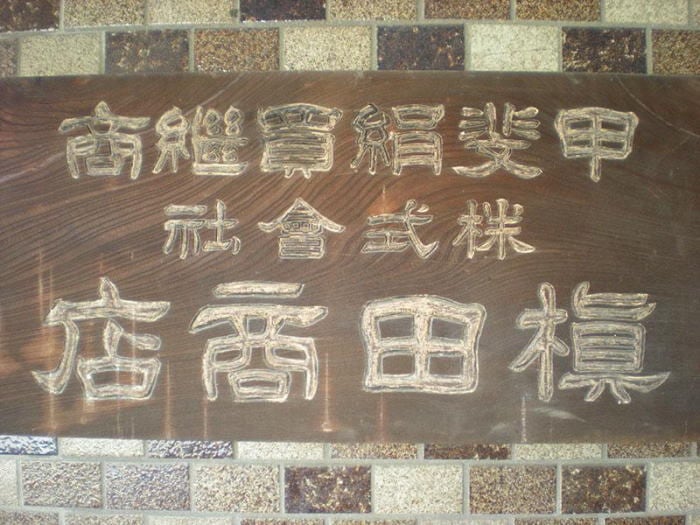 甲斐絹買継商
株式會社
槙田商店